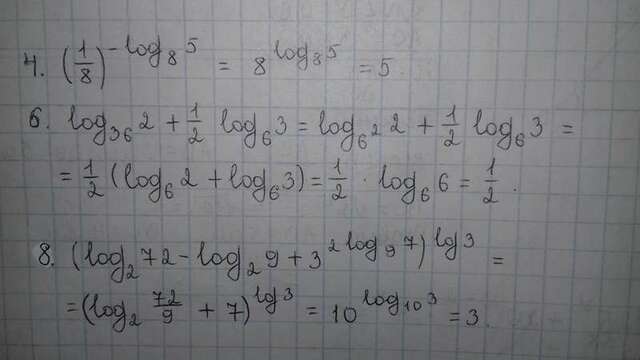 4. (1/8)^(-log₈5) = 8^(log₈5) = 5.
6. log₃₆2 + 1/2 log₆3 = log₆²2 + 1/2 log₆3 =
= 1/2 (log₆2 + log₆3) = 1/2 · log₆6 = 1/2.
8. (log₂72 - log₂9 + 3^(2log₉7))^(lg3) =
= (log₂ 72/9 + 7)^(lg3) = 10^(log₁₀3) = 3.